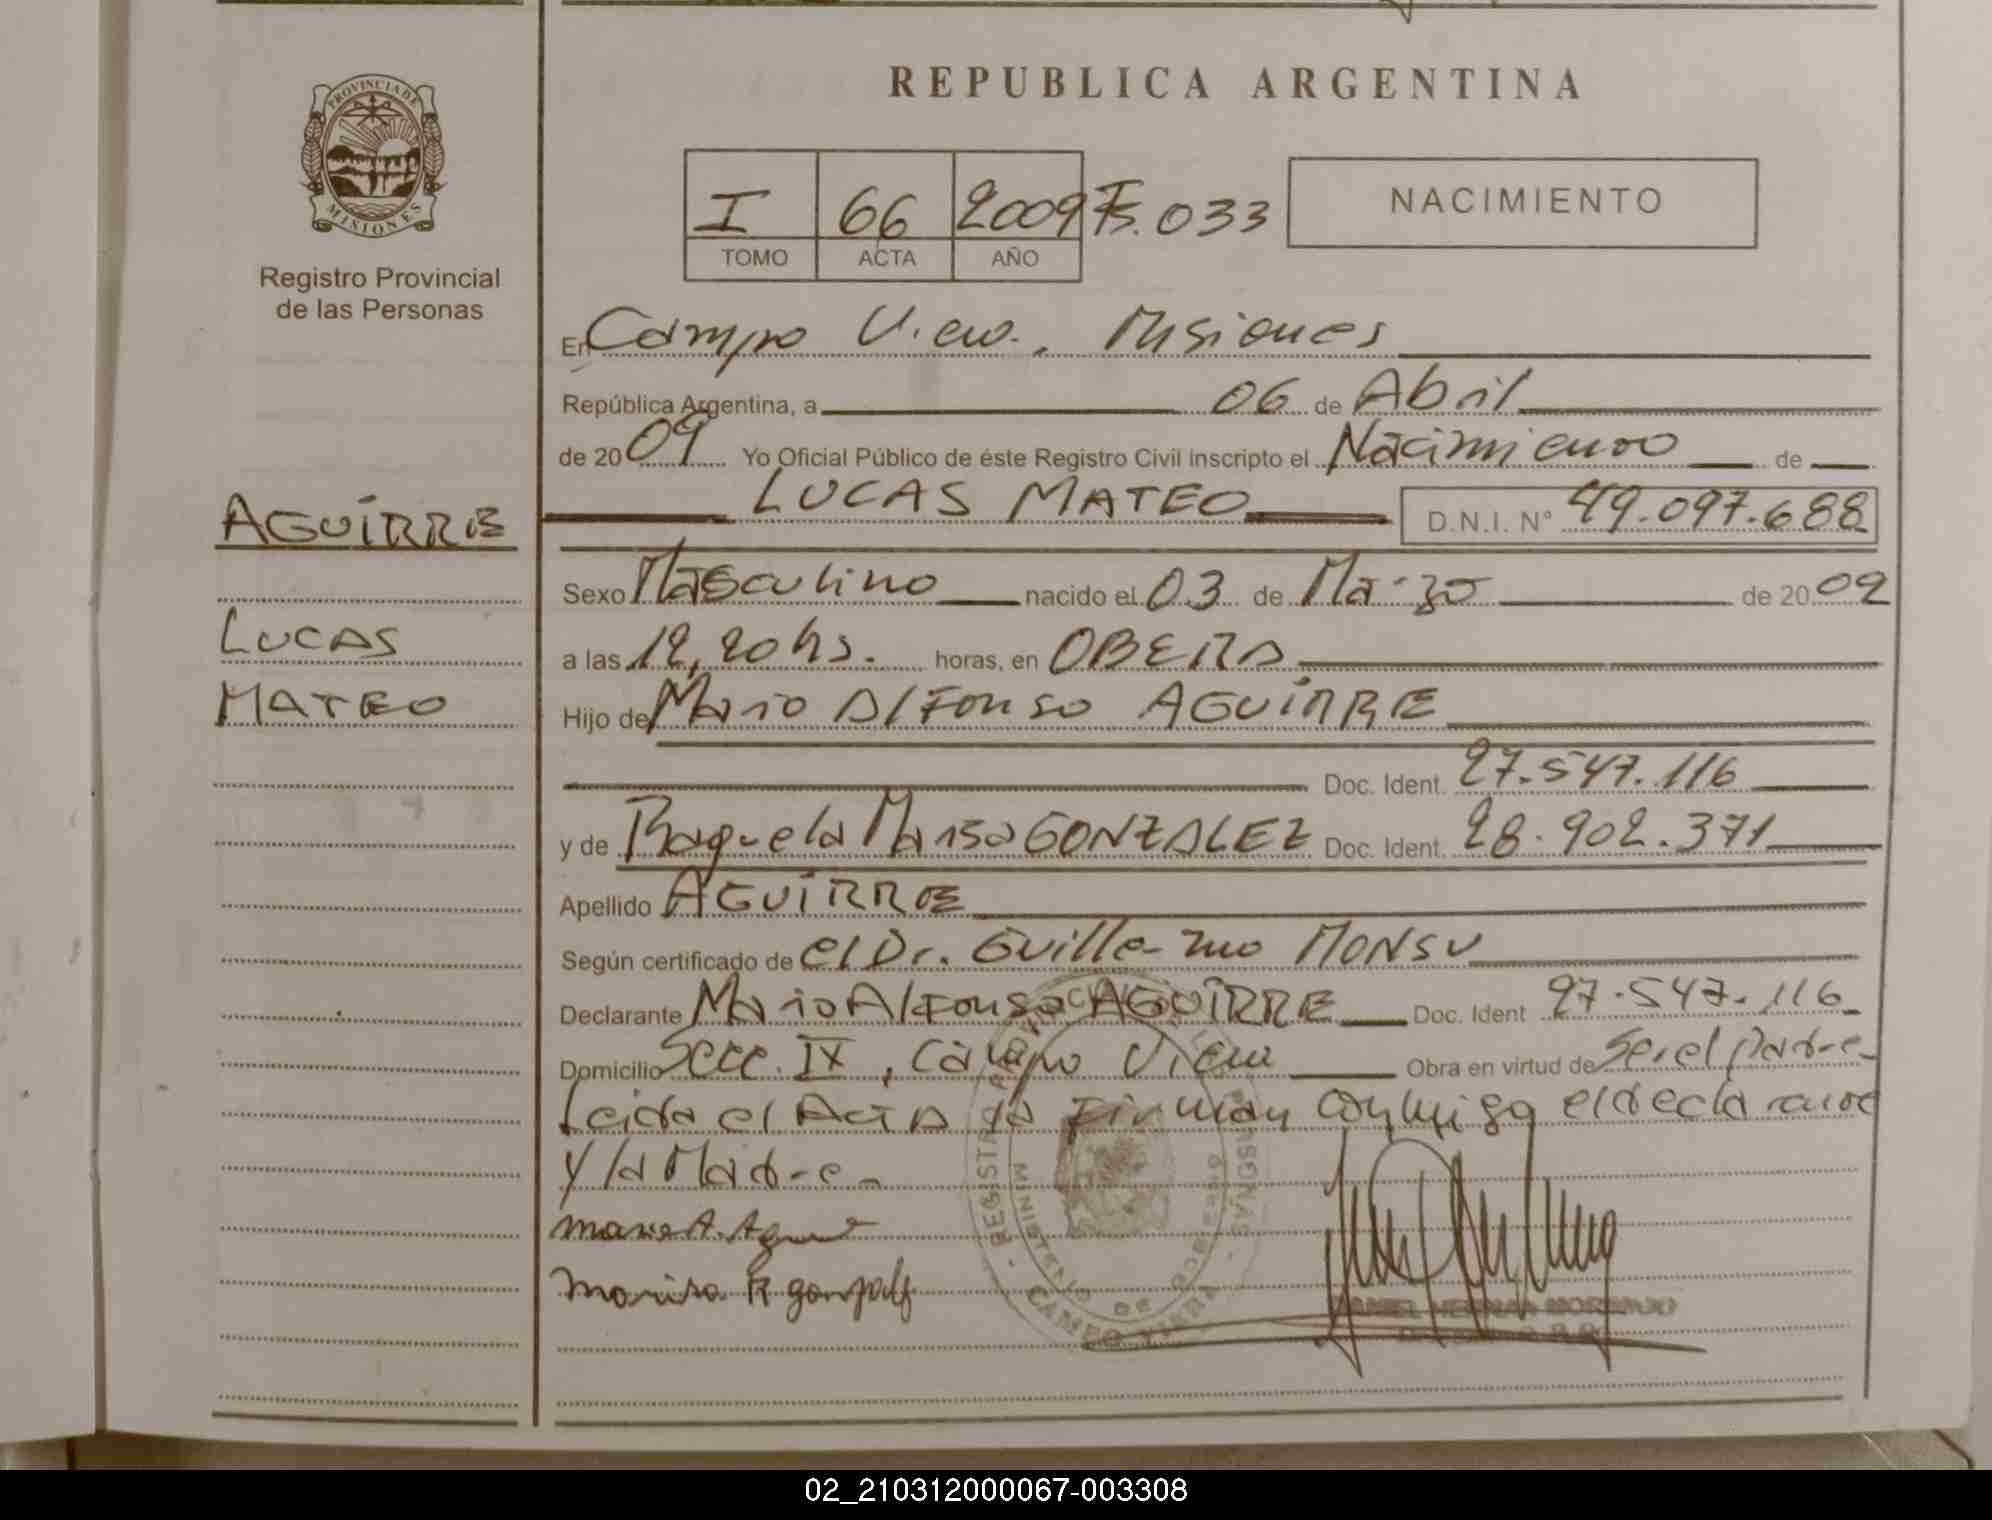 REPUBLICA ARGENTINA
PROVINCIA DE
MISIONES
Registro Provincial
de las Personas
I 66 2009 Fs. 033
TOMO ACTA AÑO
NACIMIENTO
En Campo Viera, Misiones
República Argentina, a 06 de Abril
de 2009 Yo Oficial Público de éste Registro Civil inscripto el Nacimiento de
LUCAS MATEO D.N.I. Nº 49.097.688
AGUIRRE
LUCAS
MATEO
Sexo Masculino nacido el 03 de Marzo de 2009
a las 12,20 hs. horas, en OBERA
Hijo de Mario Alfonso AGUIRRE
Doc. Ident. 27.547.116
y de Raquela Marisa GONZALEZ Doc. Ident. 28.902.371
Apellido AGUIRRE
Según certificado de el Dr. Guillermo MONSU
Declarante Mario Alfonso AGUIRRE Doc. Ident 27.547.116
Domicilio Secc. IX, Campo Viera Obra en virtud de Ser el padre
Leida el Acta la Firman conmigo el declarante
y la Madre
Mario A. Aguirre
Marisa R gonzalez
REGISTRO
PERSONAS
MINISTERIO DE GOBIERNO
CAMPO VIERA
02_210312000067-003308